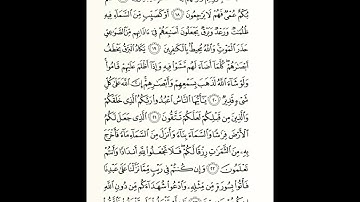 بُكْمٌ عُمْىٌ فَهُمْ لَا يَرْجِعُونَ ١٨ أَوْ كَصَيِّبٍ مِّنَ ٱلسَّمَآءِ فِيهِ
ظُلُمَٰتٌ وَرَعْدٌ وَبَرْقٌ يَجْعَلُونَ أَصَٰبِعَهُمْ فِىٓ ءَاذَانِهِم مِّنَ ٱلصَّوَٰعِقِ
حَذَرَ ٱلْمَوْتِ وَٱللَّهُ مُحِيطٌۢ بِٱلْكَٰفِرِينَ ١٩ يَكَادُ ٱلْبَرْقُ يَخْطَفُ
أَبْصَٰرَهُمْ كُلَّمَآ أَضَآءَ لَهُم مَّشَوْا۟ فِيهِ وَإِذَآ أَظْلَمَ عَلَيْهِمْ قَامُوا۟
وَلَوْ شَآءَ ٱللَّهُ لَذَهَبَ بِسَمْعِهِمْ وَأَبْصَٰرِهِمْ إِنَّ ٱللَّهَ عَلَىٰ كُلِّ
شَىْءٍ قَدِيرٌ ٢٠ يَٰٓأَيُّهَا ٱلنَّاسُ ٱعْبُدُوا۟ رَبَّكُمُ ٱلَّذِى خَلَقَكُمْ
وَٱلَّذِينَ مِن قَبْلِكُمْ لَعَلَّكُمْ تَتَّقُونَ ٢١ ٱلَّذِى جَعَلَ لَكُمُ
ٱلْأَرْضَ فِرَٰشًا وَٱلسَّمَآءَ بِنَآءً وَأَنزَلَ مِنَ ٱلسَّمَآءِ مَآءً فَأَخْرَجَ
بِهِۦ مِنَ ٱلثَّمَرَٰتِ رِزْقًا لَّكُمْ فَلَا تَجْعَلُوا۟ لِلَّهِ أَندَادًا وَأَنتُمْ
تَعْلَمُونَ ٢٢ وَإِن كُنتُمْ فِى رَيْبٍ مِّمَّا نَزَّلْنَا عَلَىٰ عَبْدِنَا
فَأْتُوا۟ بِسُورَةٍ مِّن مِّثْلِهِۦ وَٱدْعُوا۟ شُهَدَآءَكُم مِّن دُونِ ٱللَّهِ